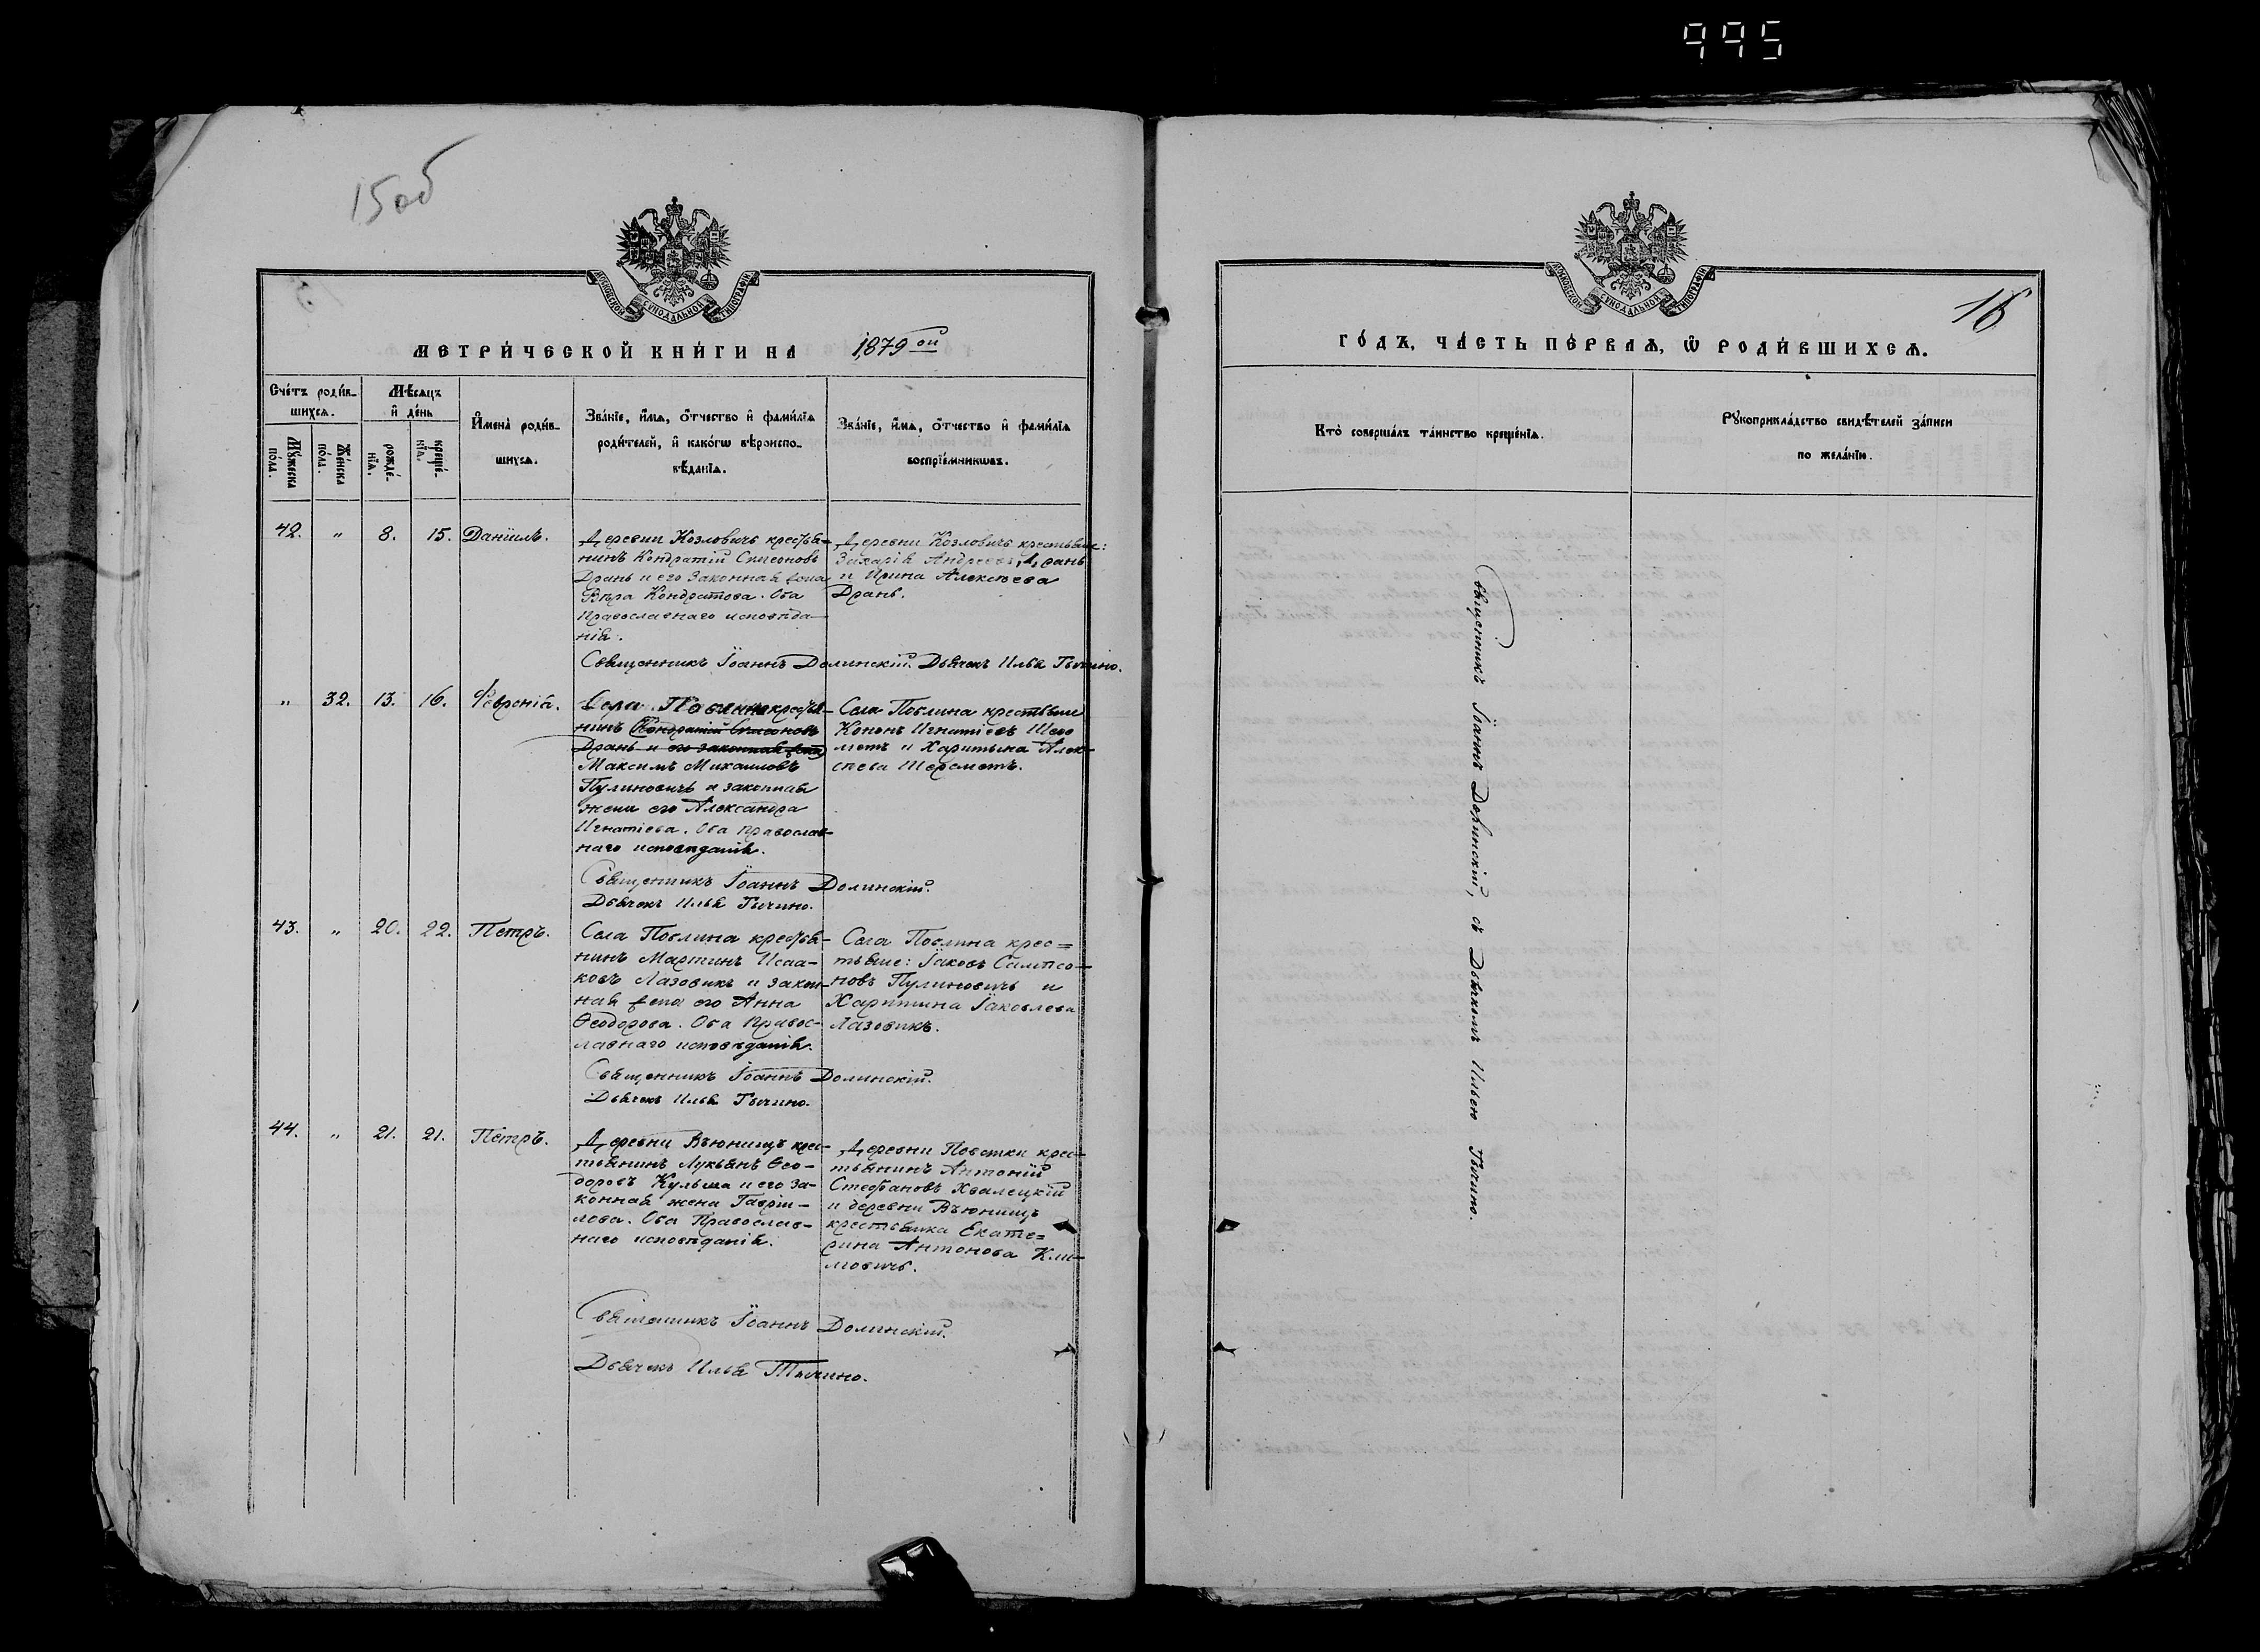 995
15об
МОСКОВСКОЙ СѴНОДАЛЬНОЙ ТИПОГРАФІИ
МЕТРИ́ЧЕСКОЙ КНИ́ГИ НА 1879ый
Сче́тъ роди́в-
шихсѧ.
Мѣсѧцъ
и҆ де́нь
Му́жеска
по́ла.
Же́нска
по́ла.
рожде́-
нїѧ.
креще́-
нїѧ.
И҆мена̀ роди́в-
шихсѧ.
Зва́нїе, и҆́мѧ, ѻ҆́тчество и҆ фами́лїѧ
роди́телей, и҆ како́гѡ вѣроиспо-
вѣ́данїѧ.
Зва́нїе, и҆́мѧ, ѻ҆́тчество и҆ фами́лїѧ
воспрїе́мникѡвъ.
42. " 8. 15. Данiилъ.
Деревни Козловичъ крестья-
нинъ Кондратій Симеоновъ
Дрань и его законная жена
Вѣра Кондратова. Оба
православнаго исповѣда-
нія.
Деревни Козловичъ крестьяне:
Захарій Андреевъ Дрань
и Ирина Алексѣева
Дрань.
Священникъ Іоаннъ Долинскій. Дьячекъ Илья Тычино.
" 32. 13. 16. Февронія.
Села Повлина крестья-
нинъ Кондратій Симеоновъ
Дрань и его законная жена
Максимъ Михаиловъ
Пулиновичъ и законная
жена его Александра
Игнатіева. Оба православ-
наго исповѣданія.
Села Повлина крестьяне
Кононъ Игнатіевъ Шере
метъ и Харитына Алек-
сѣева Шереметъ.
Священникъ Іоаннъ Долинскій.
Дьячекъ Илья Тычино.
43. " 20. 22. Петръ.
Села Повлина крестья-
нинъ Мартинъ Исаа-
ковъ Лазовикъ и закон-
ная жена его Анна
Ѳеодорова. Оба правос-
лавнаго исповѣданія.
Села Повлина крес=
тьяне: Іаковъ Сампсо-
новъ Пулиновичъ и
Харитина Іаковлева
Лазовикъ.
Священникъ Іоаннъ Долинскій.
Дьячекъ Илья Тычино.
44. " 21. 21. Петръ.
Деревни Вьюнищъ крес-
тьянинъ Лукьянъ Ѳео-
доровъ Кульша и его за-
конная жена Гаврiи-
лова. Оба Православ-
наго исповѣданія.
Деревни Повстки крес-
тьянинъ Антоній
Стефановъ Хвалецкій
и деревни Вьюнищъ
крестьянка Екате=
рина Антонова Кли-
мовичъ.
Священникъ Іоаннъ Долинскій.
Дьячекъ Илья Тычино.
МОСКОВСКОЙ СѴНОДАЛЬНОЙ ТИПОГРАФІИ
16
ГО́ДЪ, ЧА́СТЬ ПЕ́РВАѦ, Ѡ҆ РОДИ́ВШИХСѦ.
Кто̀ соверша́лъ та́инство креще́нїѧ.
Рꙋкоприкла́дство свидѣ́телей за́писи
по жела́нїю.
Священникъ Іоаннъ Долинскій, съ Дьячкомъ Ильею Тычино.